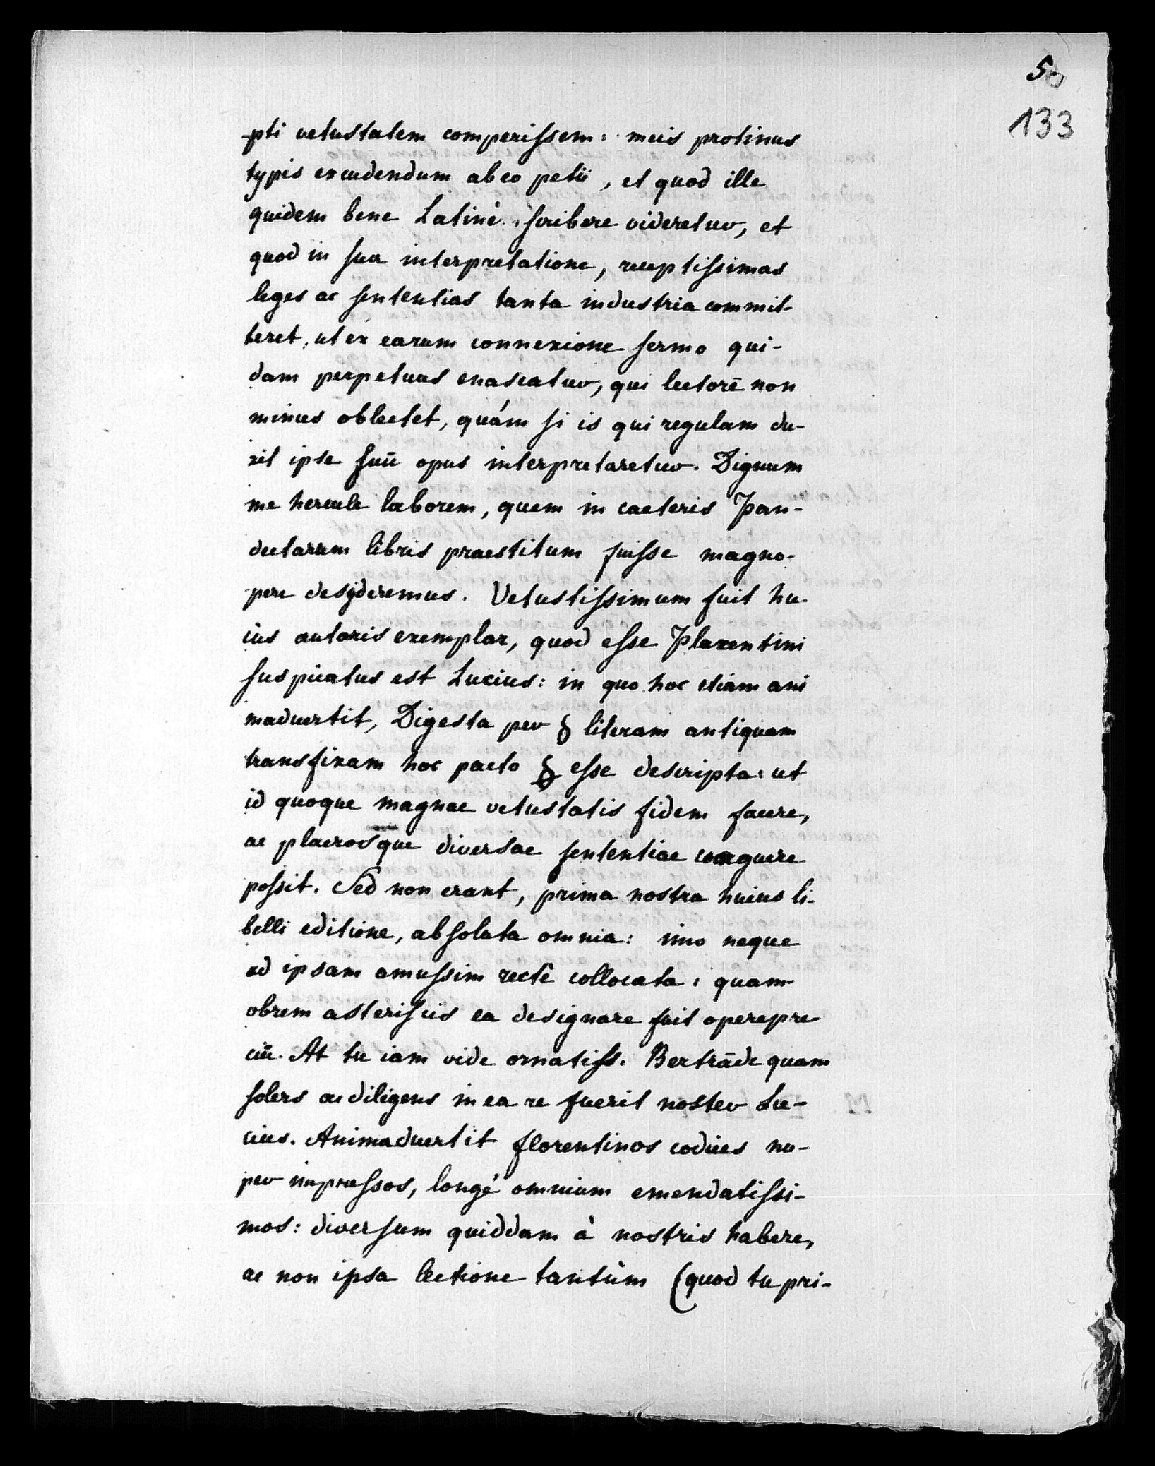 58
133
-pti vetustatem comperissem: meis protinus
typis excudendum ab eo petii, et quod ille
quidem bene Latinè scribere videretur, et
quod in sua interpretatione, receptissimas
leges ac sententias tanta industria commit-
teret, ut ex earum connexione sermo qui-
dam perpetuus enascatur, qui lectorē non
minus oblectet, quám si is qui regulam du-
xit ipse suū opus interpretaretur. Dignum
me hercule laborem, quem in caeteris Pan-
dectarum libris praestitum fuisse magno-
pere desyderemus. Vetustissimum fuit hu-
ius autoris exemplar, quod esse Plaxentini
suspicatus est Lucius: in quo hoc etiam ani
maduertit, Digesta per § literam antiquam
transfixam hoc pacto § esse descripta: ut
id quoque magnae vetustatis fidem facere,
ac plaerosque diversae sententiae coarguere
possit. Sed non erant, prima nostra huius li-
belli editione, absoluta omnia: imo neque
ad ipsam amussim rectê collocata: quam-
obrem asteriscis ea designare fuit operepre
ciū. At tu iam vide ornatiss. Bertrāde quam
solers ac diligens in ea re fuerit noster Lu-
cius. Animaduertit florentinos codices nu-
per impressos, longé omnium emendatissi-
mos: diversum quiddam à nostris habere,
ac non ipsa lectione tantùm (quod tu pri-